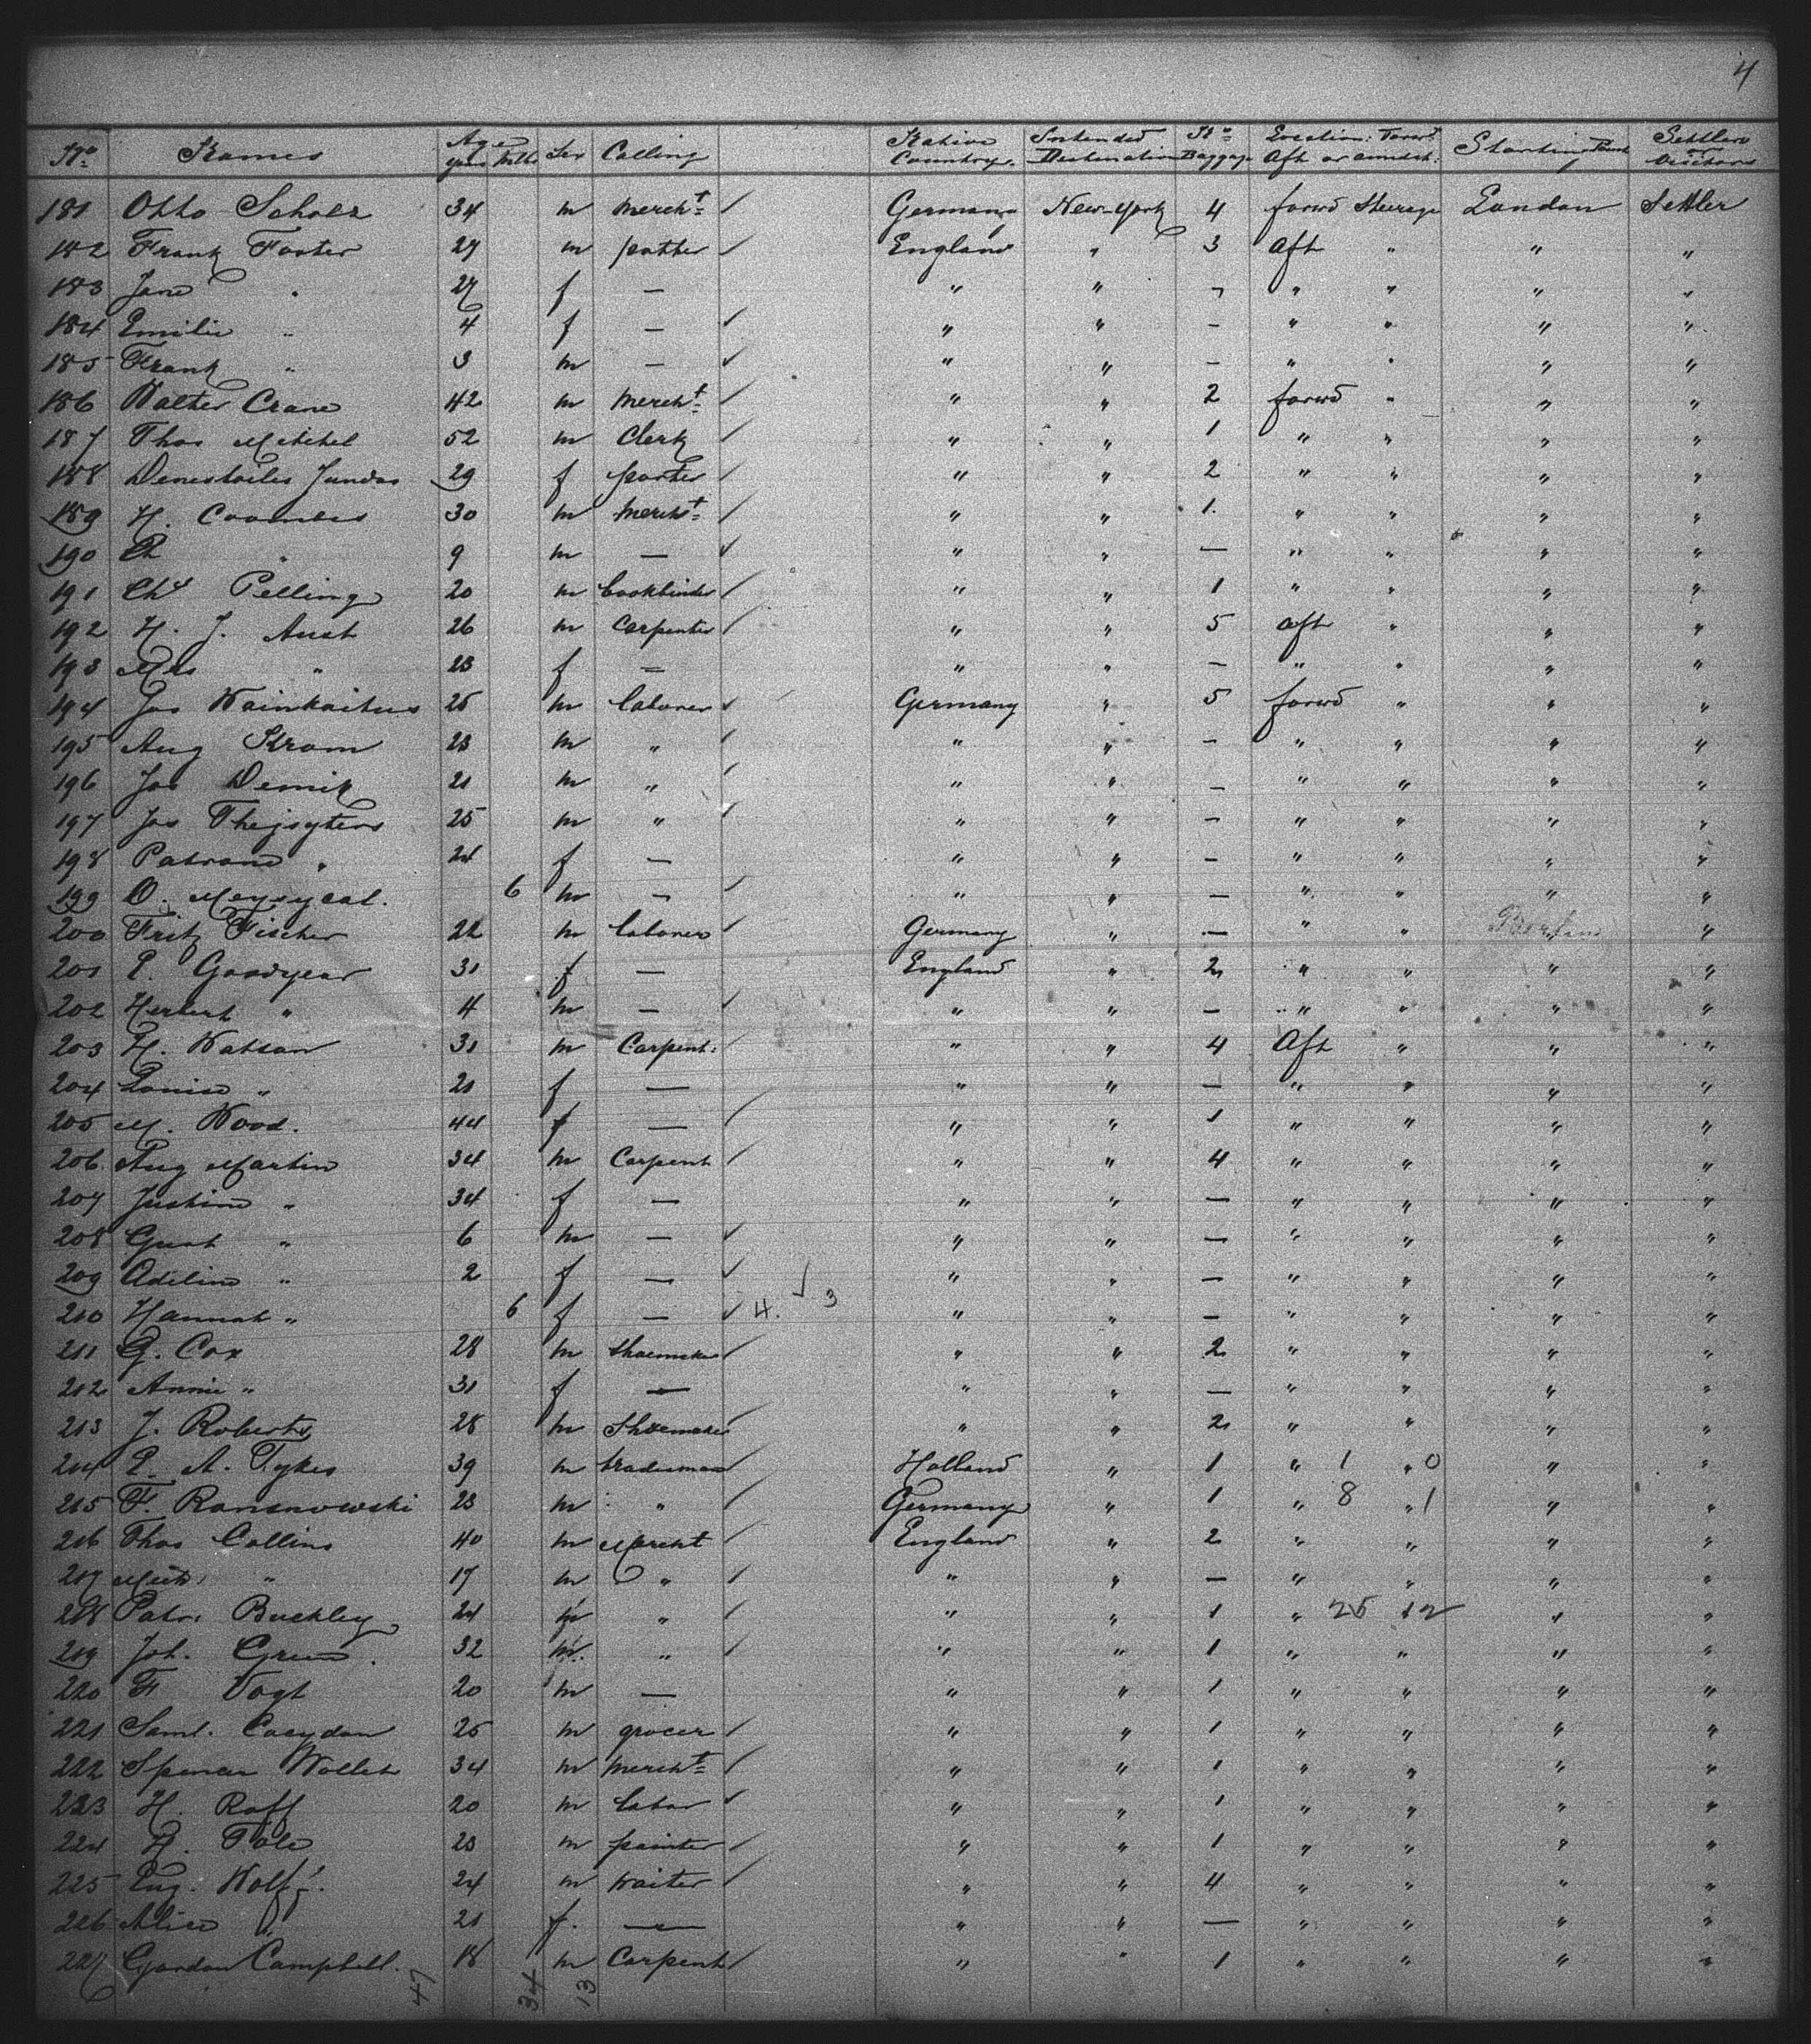 4
No. Names Age years Mths Sex Calling Native Country. Intended Destination No. Baggage Location: Forwd Aft or amidst: Starting Point Settlers or Visitors
181 Otto Scholz 34 m mercht / Germany New-York 4 forwd Steerage London Settler
182 Frank Foster 27 m potter / England " 3 Aft " " "
183 Jane " 27 f — " " - " " " "
184 Emilie " 4 f — ✓ " " - " " " "
185 Frank " 3 m — ✓ " " - " " " "
186 Walter Crane 42 m mercht / " " 2 forwd " " "
187 Thos Mitchel 52 m Clerk / " " 1 " " " "
188 Jundas 29 f porter / " " 2 " " " "
189 H. Coombes 30 m mercht / " " 1 " " " "
190 " 9 m — ✓ " " — " " " "
191 Chs Pelling 20 m bookbinder / " " 1 " " " "
192 H. J. Aust 26 m Carpenter / " " 5 aft " " "
193 Mrs " 23 f — " " — " " " "
194 Jos Wainkaitus 25 m laborer ✓ Germany " 5 forwd " " "
195 Aug Krom 23 m " / " " - " " " "
196 Jos Demik 21 m " / " " - " " " "
197 Jos 25 m " / " " - " " " "
198 " 24 f — " " - " " " "
199 O. 6 m — / " " — " " " "
200 Fritz Fischer 22 m laborer / Germany " — " " " "
201 E. Goodyear 31 f — England " 2 " " " "
202 Herbert " 4 m — / " " — " " " "
203 H. Watson 31 m Carpent: / " " 4 Aft " " "
204 Louise " 21 f — " " — " " " "
205 M. Wood. 44 f — / " " 1 " " " "
206. Aug Martin 34 m Carpent / " " 4 " " " "
207 Justine " 34 f — " " — " " " "
208 Gust " 6 m — ✓ " " — " " " "
209 Adeline " 2 f — ✓ " " — " " " "
210 Hannah " 6 f — ✓ 4. √ 3 " " — " " " "
211 G. Cox 28 m shoemaker / " " 2 " " " "
212 Annie " 31 f — " " — " " " "
213 J. Roberts 28 m Shoemaker / " " 2 " " " "
214 P. A. Tykes 39 m tradesman / Holland " 1 " 1 " 0 " "
215 F. Ransnowski 23 m " / Germany " 1 " 8 " 1 " "
216 Thos Collins 40 m Mercht / England " 2 " " " "
217 " 17 m " / " " — " " " "
218 Patr: Buckley 24 m " / " " 1 " 25 12 " "
219 Joh. Green. 32 m " / " " 1 " " " "
220 F Vogt 20 m — " " 1 " " " "
221 Saml. Corydon 25 m grocer / " " 1 " " " "
222 Spencer Wollet 34 m mercht / " " 1 " " " "
223 H. Roff 20 m labor ✓ " " 1 " " " "
224 H. Tole 23 m painter / " " 1 " " " "
225 Eug. Wolff. 24 m waiter / " " 4 " " " "
226 Alice " 21 f. — " " — " " " "
227 Gordon Campbell. 18 m Carpent / " " 1 " " " "
47 34 13